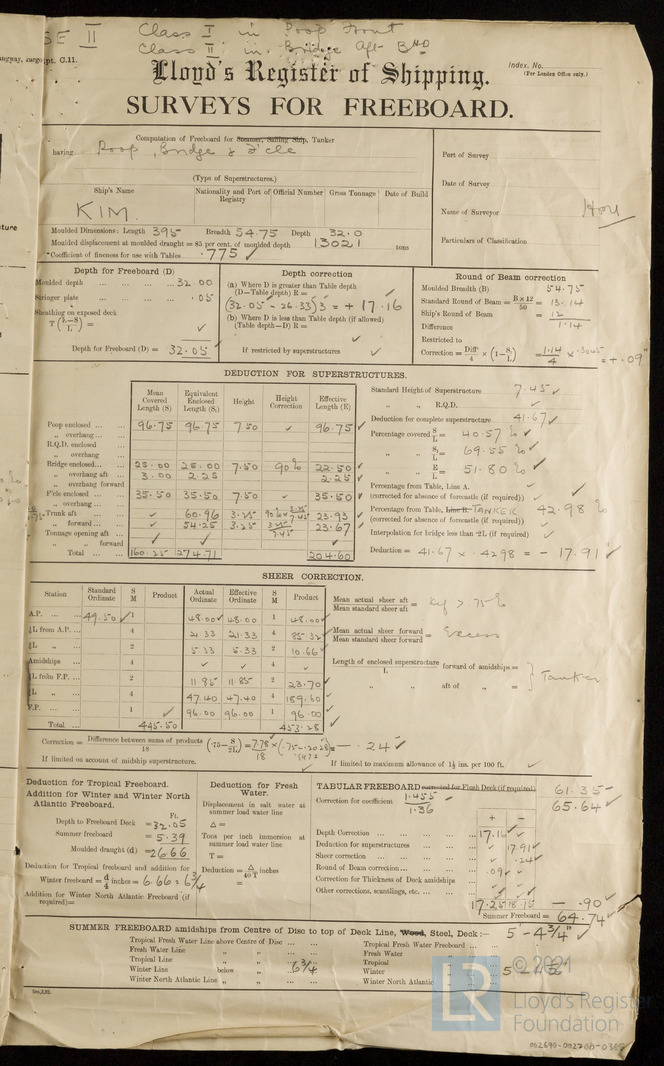 SE II
Class I in Poop Front
Class II in Bridge Aft BHD
pt. C.11.
Index. No.
(For London Office only.)
Lloyd's Register of Shipping.
SURVEYS FOR FREEBOARD.
Computation of Freeboard for Steamer, Sailing Ship, Tanker
having Poop, Bridge & F'cle
(Type of Superstructures.)
Port of Survey
Date of Survey
Name of Surveyor
Particulars of Classification
Ship's Name
Nationality and Port of Registry
Official Number
Gross Tonnage
Date of Build
KIM.
Moulded Dimensions: Length 395 Breadth 54.75 Depth 32.0
Moulded displacement at moulded draught = 85 per cent. of moulded depth 13021 tons
Coefficient of fineness for use with Tables .775 ✓
Depth for Freeboard (D)
Moulded depth 32.00
Stringer plate .05
Sheathing on exposed deck
T (L-S/L) = ✓
Depth for Freeboard (D) = 32.05 ✓
Depth correction
(a) Where D is greater than Table depth
(D—Table depth) R =
(32.05 - 26.33) 3 = + 17.16
(b) Where D is less than Table depth (if allowed)
(Table depth—D) R =
If restricted by superstructures
Round of Beam correction
Moulded Breadth (B) 54.75
Standard Round of Beam = B×12/50 = 13.14
Ship's Round of Beam = 12
Difference 1.14
Restricted to
Correction = Diff/4 × (1-S₁/L) = 1.14/4 × .3045 = +.09"
DEDUCTION FOR SUPERSTRUCTURES.
Mean Covered Length (S)
Equivalent Enclosed Length (S₁)
Height
Height Correction
Effective Length (E)
Poop enclosed 96.75 96.75 7.50 ✓ 96.75 ✓
" overhang
R.Q.D. enclosed
" overhang
Bridge enclosed 25.00 25.00 7.50 90% 22.50
" overhang aft 3.00 2.25 2.25
" overhang forward
F'cle enclosed 35.50 35.50 7.50 ✓ 35.50 ✓
" overhang
Trunk aft ✓ 60.96 3.25 23.93
" forward ✓ 54.25 3.25 3.25/7.45 23.67
Tonnage opening aft
" forward
Total 160.25 274.71 204.60
Standard Height of Superstructure 7.45 ✓
" " R.Q.D. ✓
Deduction for complete superstructure 41.67 ✓
Percentage covered S/L = 40.57 % ✓
" S₁/L = 69.55 % ✓
" E/L = 51.80 % ✓
Percentage from Table, Line A.
(corrected for absence of forecastle (if required))
Percentage from Table, Line B. TANKER 42.98 %
(corrected for absence of forecastle (if required))
Interpolation for bridge less than .2L (if required)
Deduction = 41.67 × .4298 = - 17.91 ✓
SHEER CORRECTION.
Station
Standard Ordinate
S M
Product
Actual Ordinate
Effective Ordinate
S M
Product
A.P. 49.50 ✓ 1 48.00 48.00 1 48.00
L from A.P. 4 21.33 21.33 4 85.32
L " 2 5.33 5.33 2 10.66
Amidships 4 ✓ ✓ 4 ✓
L from F.P. 2 11.85 11.85 2 23.70
L " 4 47.40 47.40 4 189.60
F.P. 1 96.00 96.00 1 96.00
Total 445.50 453.28
Mean actual sheer aft / Mean standard sheer aft = > 75%
Mean actual sheer forward / Mean standard sheer forward = Excess
Length of enclosed superstructure / L forward of amidships =
" " aft of " = } Tanker
Correction = Difference between sums of products / 18 (.75 - S/2L) = 7.78/18 × (.75 - .2028) = - .24 ✓
If limited on account of midship superstructure.
If limited to maximum allowance of 1½ ins. per 100 ft.
Deduction for Tropical Freeboard.
Addition for Winter and Winter North Atlantic Freeboard.
Ft.
Depth to Freeboard Deck = 32.05
Summer freeboard = 5.39
Moulded draught (d) = 26.66
Deduction for Tropical freeboard and addition for
Winter freeboard = d/4 inches = 6.66 = 6¾
Addition for Winter North Atlantic Freeboard (if required) =
Deduction for Fresh Water.
Displacement in salt water at summer load water line
Δ =
Tons per inch immersion at summer load water line
T =
Deduction = Δ/40T inches
=
TABULAR FREEBOARD corrected for Flush Deck (if required) 61.35
Correction for coefficient 1.455/1.36 65.64 ✓
+ -
Depth Correction 17.16 ✓
Deduction for superstructures 17.91 ✓
Sheer correction .24 ✓
Round of Beam correction .09 ✓
Correction for Thickness of Deck amidships
Other corrections, scantlings, etc.
17.25 18.15 - .90 ✓
Summer Freeboard = 64.74 ✓
SUMMER FREEBOARD amidships from Centre of Disc to top of Deck Line, Wood, Steel, Deck:— 5' - 4¾"
Tropical Fresh Water Line above Centre of Disc
Fresh Water Line " "
Tropical Line " "
Winter Line below " 6¾
Winter North Atlantic Line " "
Tropical Fresh Water Freeboard
Fresh Water "
Tropical "
Winter "
Winter North Atlantic "
© 2021
Lloyd's Register
Foundation
LR
002690-002700-0357